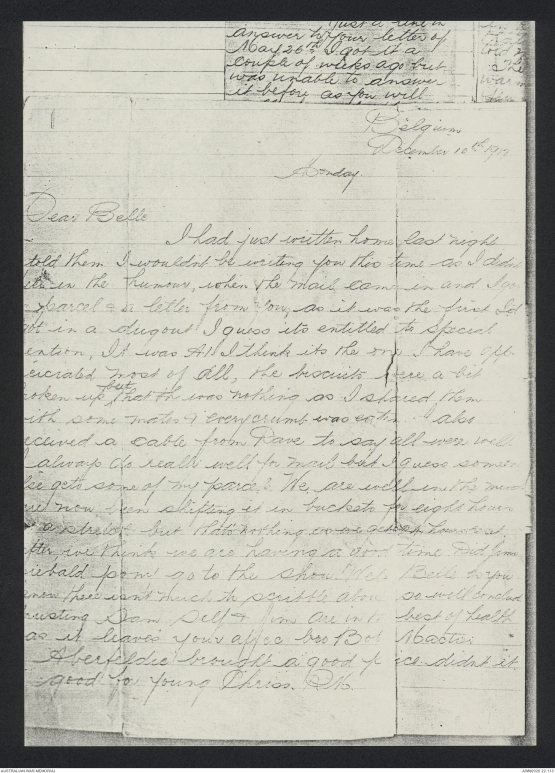 Just a line in
answer to your letter of
May 26th I got it a
couple of weeks ago but
was unable to answer
it before as you will
Belgium
December 10th 1917
Monday
Dear Belle
I had just written home last night
told them I wouldnt be writing you this time as I didnt
in the humour, when the mail came in and I
parcel & a letter from you, as it was the first I'd
in a dugout I guess its entitled to special
ention, It was A1 I think its the one I have app
eciated most of all, the biscuits were a bit
roken up but that was nothing as I shared them
ith some mates & every crumb was eaten I also
eceived a cable from Dave to say all were well
I always do really well for mail but I guess someon
lse gets some of my parcels We are well in the mud
now, been shifting it in buckets for eight hours
a stretch but thats nothing
fter we think we are having a good time Did Jim
iebald pony go to the show? Well Belle as you
know there isnt much to scribble about so will conclude
rusting Dan, Self & Jim are in the best of health
as it leaves your affec bro Bob Mactier
Aberfeldie brought a good price didnt it
good for young Chriss. R.M.
AUSTRALIAN WAR MEMORIAL